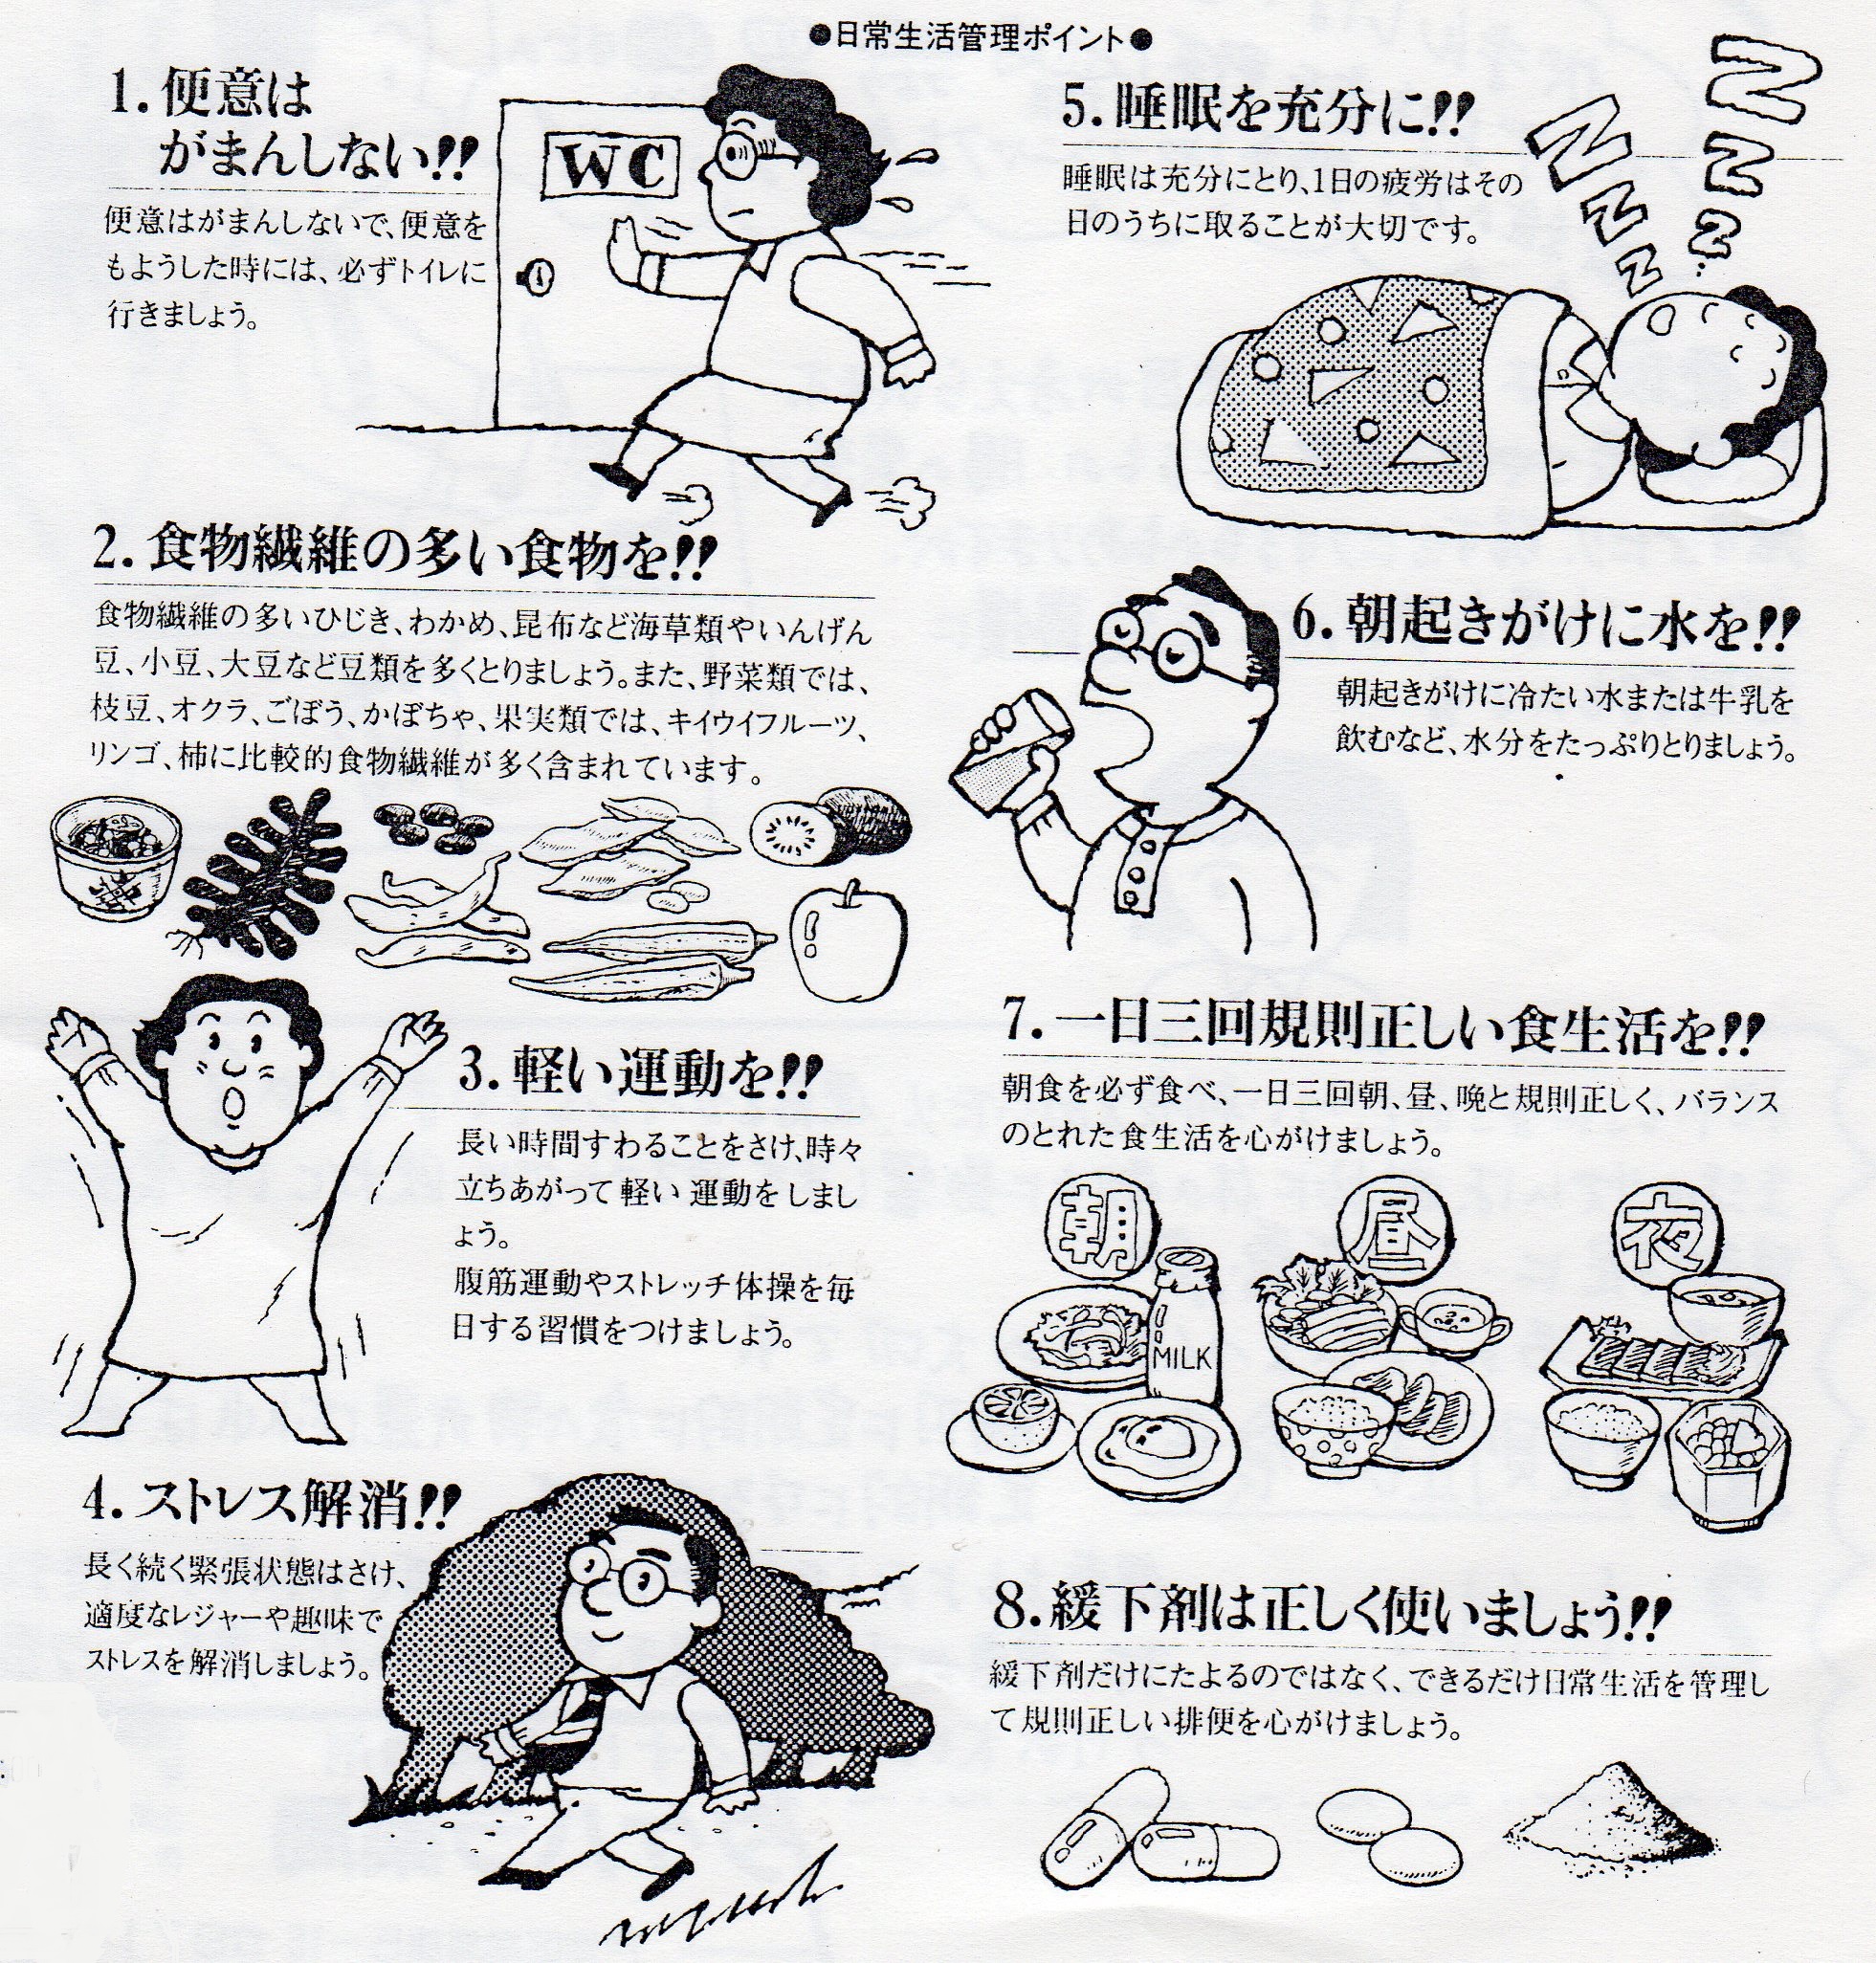 ●日常生活管理ポイント●
1. 便意は
がまんしない!!
便意はがまんしないで、便意を
もようした時には、必ずトイレに
行きましょう。
WC
2. 食物繊維の多い食物を!!
食物繊維の多いひじき、わかめ、昆布など海草類やいんげん
豆、小豆、大豆など豆類を多くとりましょう。また、野菜類では、
枝豆、オクラ、ごぼう、かぼちゃ、果実類では、キイウイフルーツ、
リンゴ、柿に比較的食物繊維が多く含まれています。
3. 軽い運動を!!
長い時間すわることをさけ、時々
立ちあがって軽い運動をしまし
ょう。
腹筋運動やストレッチ体操を毎
日する習慣をつけましょう。
4. ストレス解消!!
長く続く緊張状態はさけ、
適度なレジャーや趣味で
ストレスを解消しましょう。
5. 睡眠を充分に!!
睡眠は充分にとり、1日の疲労はその
日のうちに取ることが大切です。
Z Z Z
Z Z Z Z
6. 朝起きがけに水を!!
朝起きがけに冷たい水または牛乳を
飲むなど、水分をたっぷりとりましょう。
7. 一日三回規則正しい食生活を!!
朝食を必ず食べ、一日三回朝、昼、晩と規則正しく、バランス
のとれた食生活を心がけましょう。
朝 昼 夜
MILK
8. 緩下剤は正しく使いましょう!!
緩下剤だけにたよるのではなく、できるだけ日常生活を管理し
て規則正しい排便を心がけましょう。